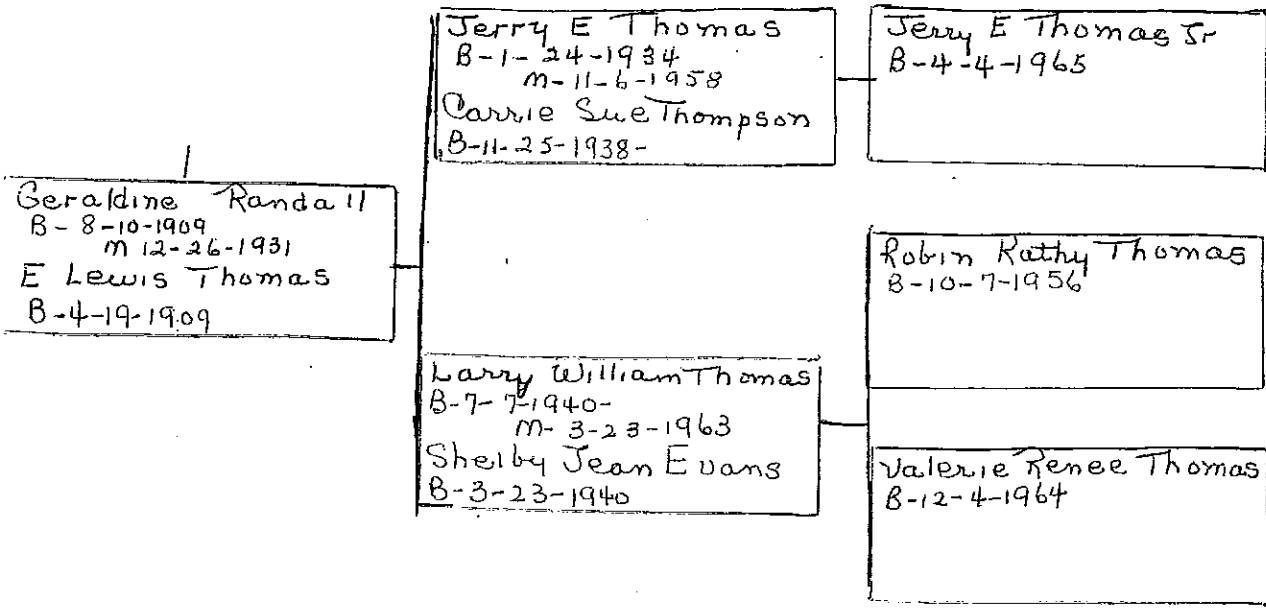 Geraldine Randall
B - 8-10-1909
m 12-26-1931
E Lewis Thomas
B-4-19-1909
Jerry E Thomas
B-1-24-1934
m-11-6-1958
Carrie Sue Thompson
B-11-25-1938-
Larry William Thomas
B-7-7-1940-
m- 3-23-1963
Shelby Jean Evans
B-3-23-1940
Jerry E Thomas Jr
B-4-4-1965
Robin Kathy Thomas
B-10-7-1956
Valerie Renee Thomas
B-12-4-1964